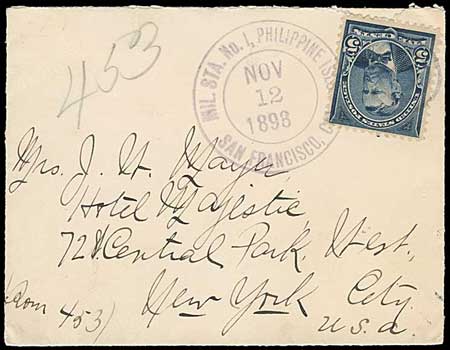 453
MIL. STA. No. 1, PHILIPPINE ISL
NOV
12
1898
SAN FRANCISCO, C
Mrs. J. W. Mayer
Hotel Majestic
72d Central Park, West,
New York City
U.S.a.
(Room 453)